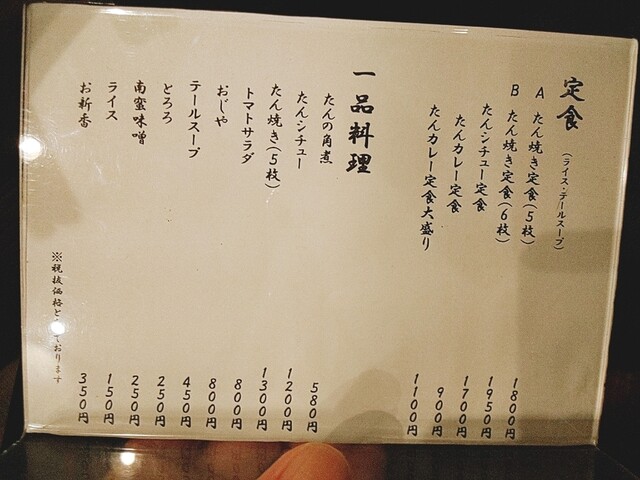 定食
（ライス・テールスープ）
A たん焼き定食（5枚） 1800円
B たん焼き定食（6枚） 1950円
たんシチュー定食 1700円
たんカレー定食 900円
たんカレー定食大盛り 1100円
一品料理
たんの角煮 580円
たんシチュー 1200円
たん焼き（5枚） 1300円
トマトサラダ 800円
おじや 800円
テールスープ 450円
とろろ 250円
南蛮味噌 250円
ライス 150円
お新香 350円
※税抜価格となっております